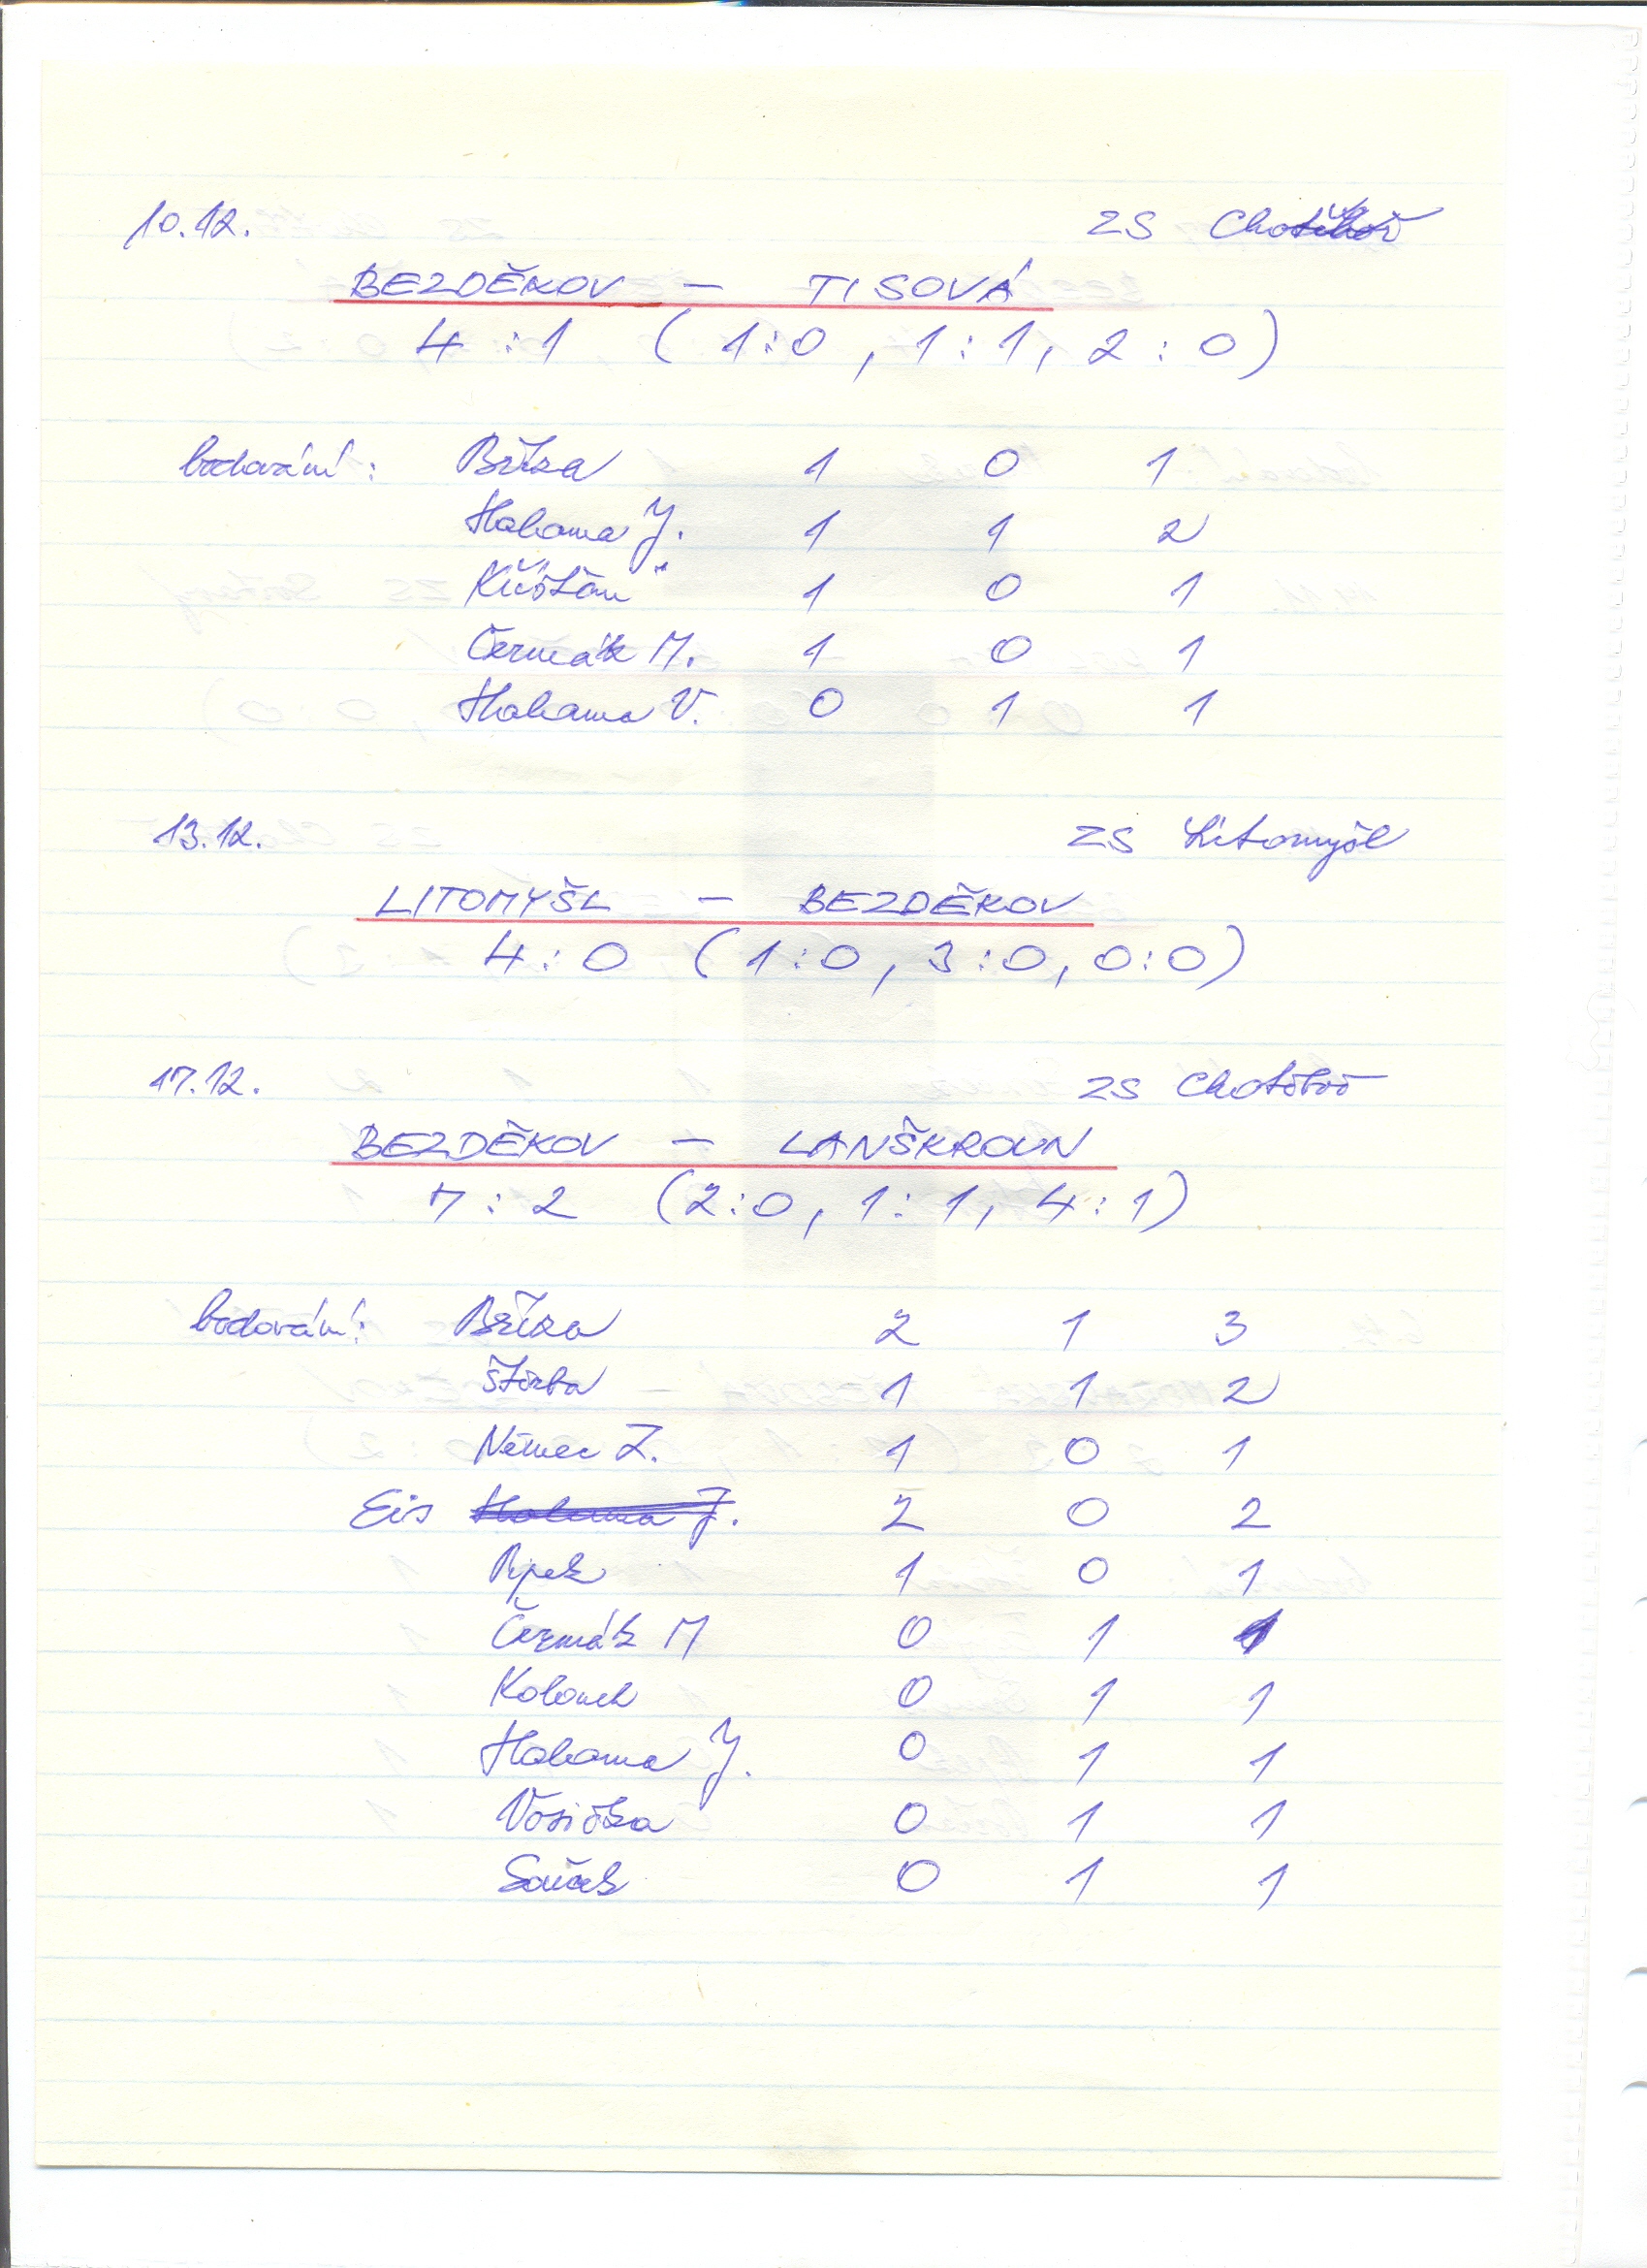 10.12. ZS Chotěboř
BEZDĚKOV – TISOVÁ
4 : 1 ( 1:0 , 1:1, 2:0 )
bodování : Bříza 1 0 1
Halama J. 1 1 2
1 0 1
Čermák M. 1 0 1
Halama V. 0 1 1
13.12. ZS Litomyšl
LITOMYŠL – BEZDĚKOV
4:0 ( 1:0, 3:0, 0:0 )
17.12. ZS Chotěboř
BEZDĚKOV – LANŠKROUN
7 : 2 (2:0, 1:1, 4:1)
bodování: Bříza 2 1 3
Štirba 1 1 2
Němec Z. 1 0 1
Eis Halama J. 2 0 2
1 0 1
Čermák M 0 1 1
0 1 1
Halama J. 0 1 1
Vosička 0 1 1
Souček 0 1 1